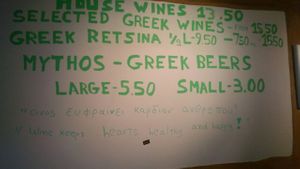 HOUSE WINES 13.50
SELECTED GREEK WINES - FROM 15.50
GREEK RETSINA 1/2 L - 9.50 - 750ML 15.50
MYTHOS - GREEK BEERS
LARGE - 5.50 SMALL - 3.00
"οινος ευφραινει καρδιαν ανθρωπου"
"Wine keeps hearts healthy and happy!"